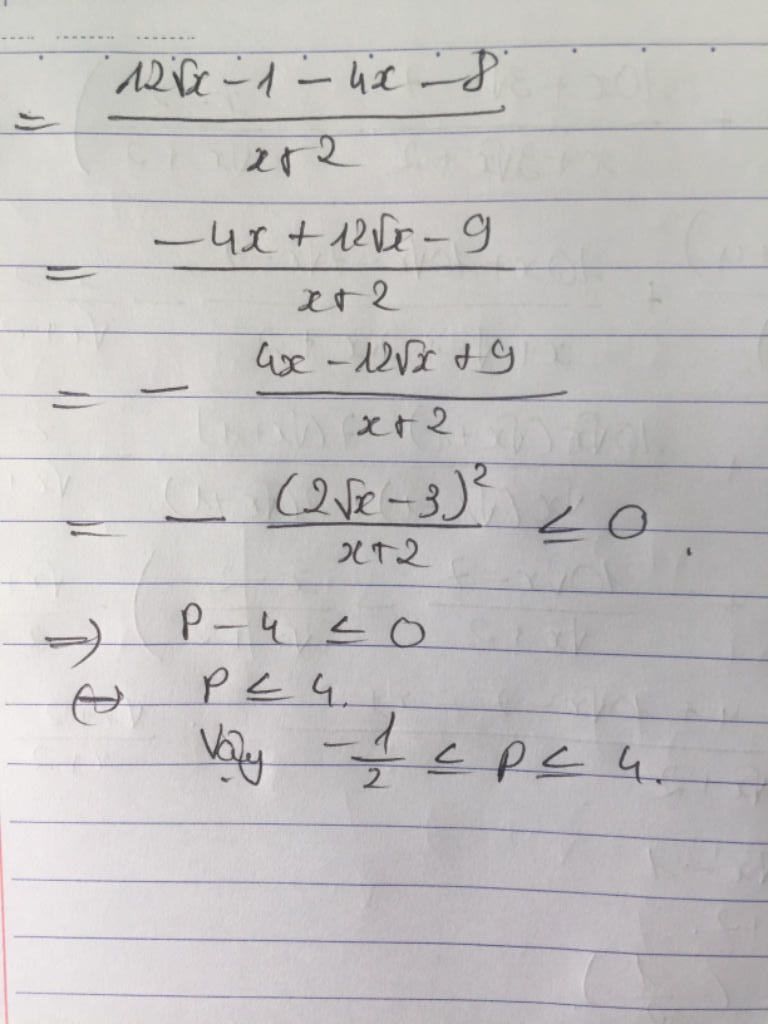 = (12√x - 1 - 4x - 8)/(x+2)
= (-4x + 12√x - 9)/(x+2)
= - (4x - 12√x + 9)/(x+2)
= - (2√x - 3)²/(x+2) ≤ 0.
=> P - 4 ≤ 0
<=> P ≤ 4.
Vậy -1/2 ≤ P ≤ 4.